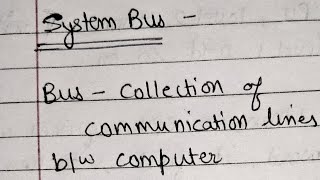 System Bus -
Bus - Collection of
communication lines
b/w computer